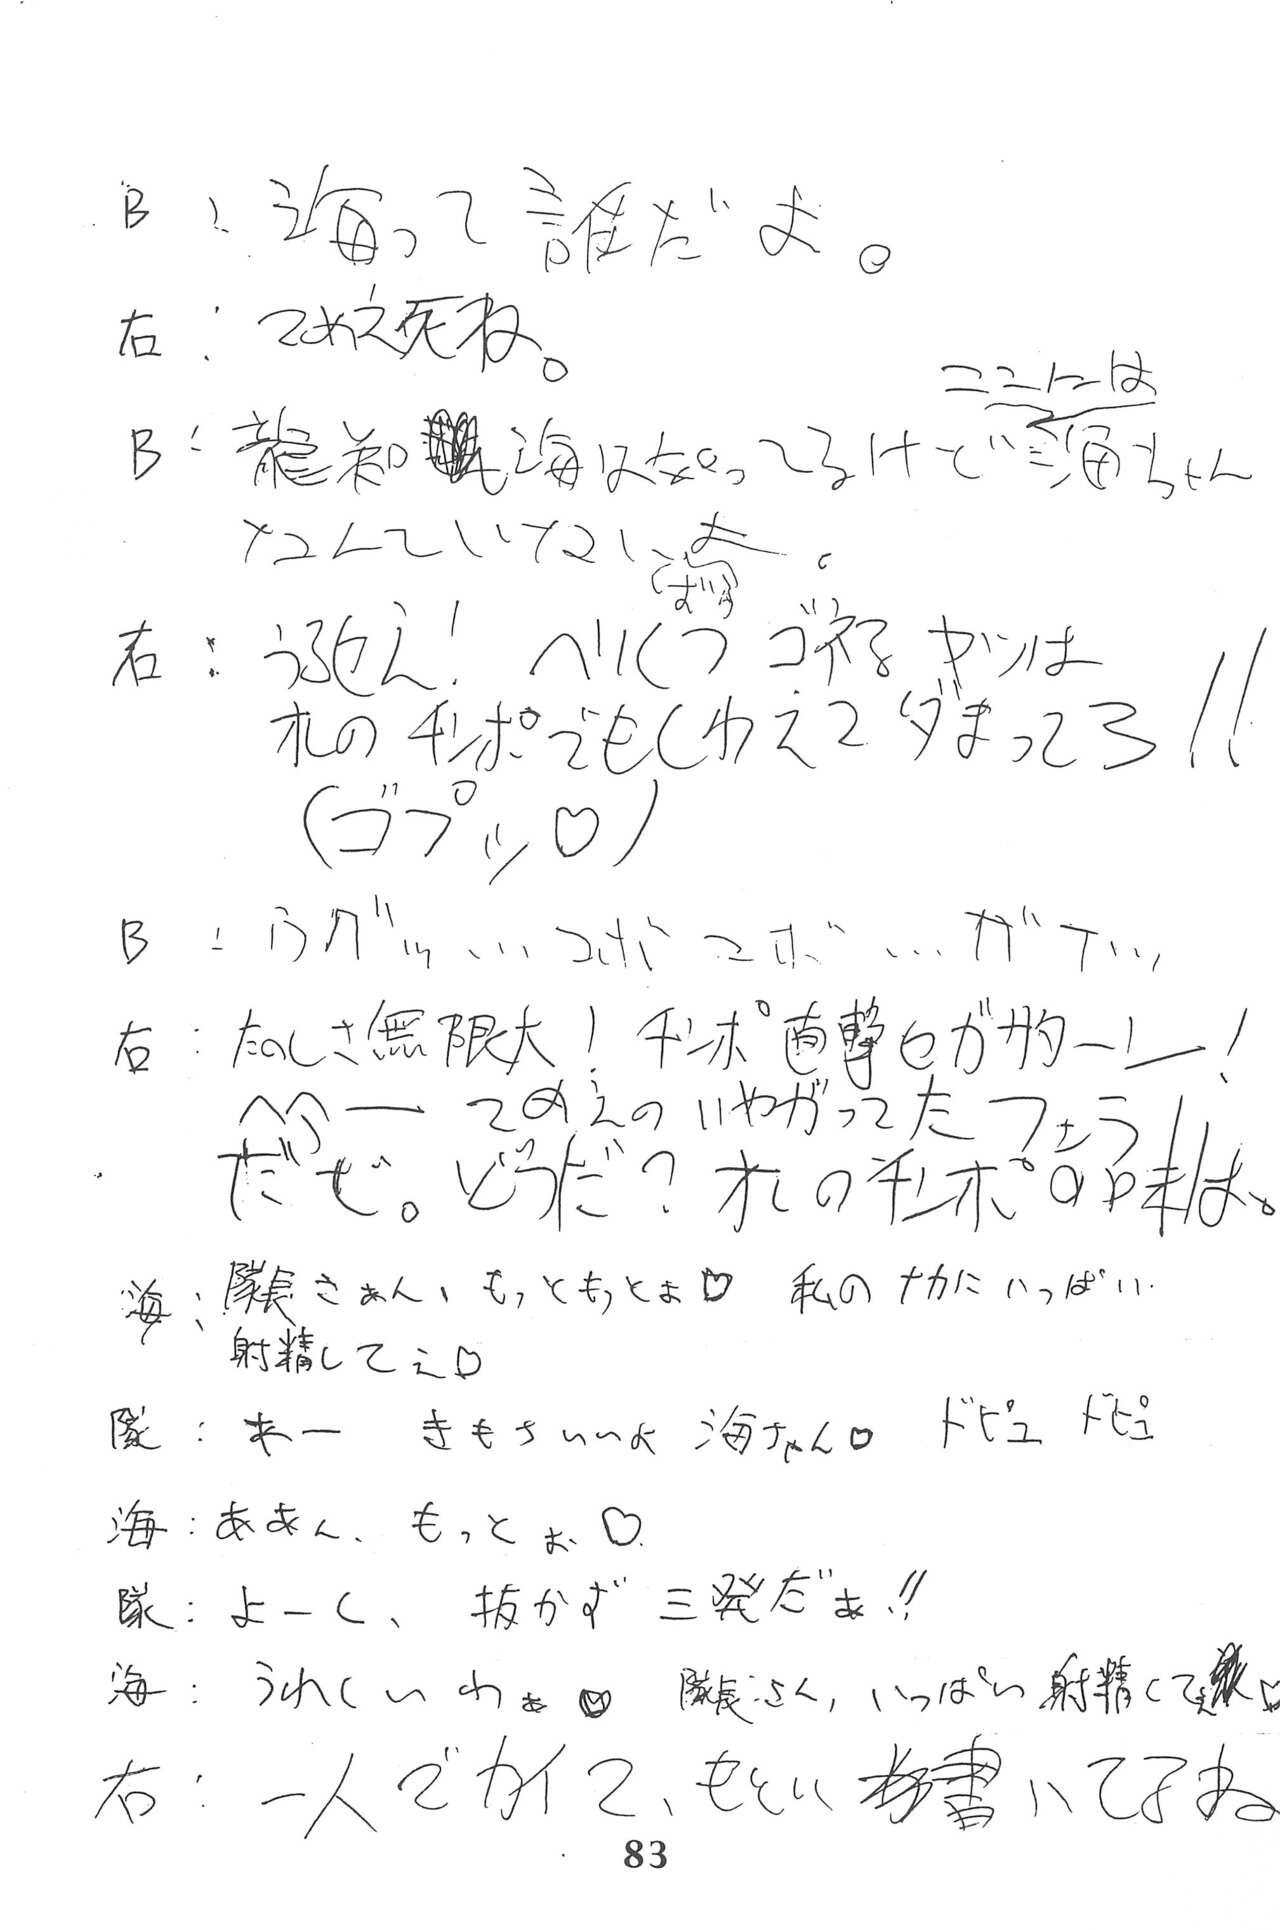 B：海って誰だよ。
右：てめえ死ね。
ここには
B：龍和海は知ってるけど海ちゃん
なんていないよ。
右：うるせえ！ へりくつゴネるヤツは
オレのチンポでもくわえてダまってろ!!
(ゴプッ♡)
B：うグッ… … ガ
右：たのしさ無限大！チンポ直撃セガサターン！
へへー てめえのいやがってたフェラ
だぜ。どうだ？オレのチンポの味は。
海：隊長さぁん、もっともっとぉ♡ 私のナカにいっぱい
射精してぇ♡
隊：あー きもちいいよ 海ちゃん♡ ドピュ ドピュ
海：ああん、もっとぉ♡
隊：よーし、抜かず三発だぁ!!
海：うれしいわぁ♡ 隊長さん、いっぱい射精してぇ♡
右：一人でカイて、もとい書いてるね
83